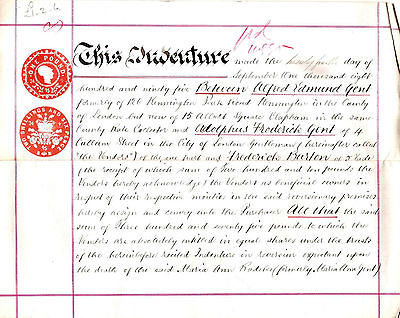 £1.2.6
This Indenture made the twenty fifth day of
September One thousand eight
hundred and ninety five Between Alfred Edmund Gent
formerly of 186 Kennington Park Road Kennington in the County
of London but now of 15 Albert Square Clapham in the same
County Rate Collector and Adolphus Frederick Gent of 4
Cullum Street in the City of London Gentleman (hereinafter called
"the Vendors") of the one part and Frederick Burton of
(the receipt of which sum of Five hundred and ten pounds the
Vendors hereby acknowledge) the Vendors as beneficial owners in
respect of their respective moieties in the said reversionary premises
hereby assign and convey unto the Purchaser All that the said
sum of Three hundred and seventy five pounds to which the
Vendors are absolutely entitled in equal shares under the trusts
of the hereinbefore recited Indenture in reversion expectant upon
the death of the said Maria Ann Radcliffe (formerly Maria Ann Gent)
ONE POUND
SHILLINGS